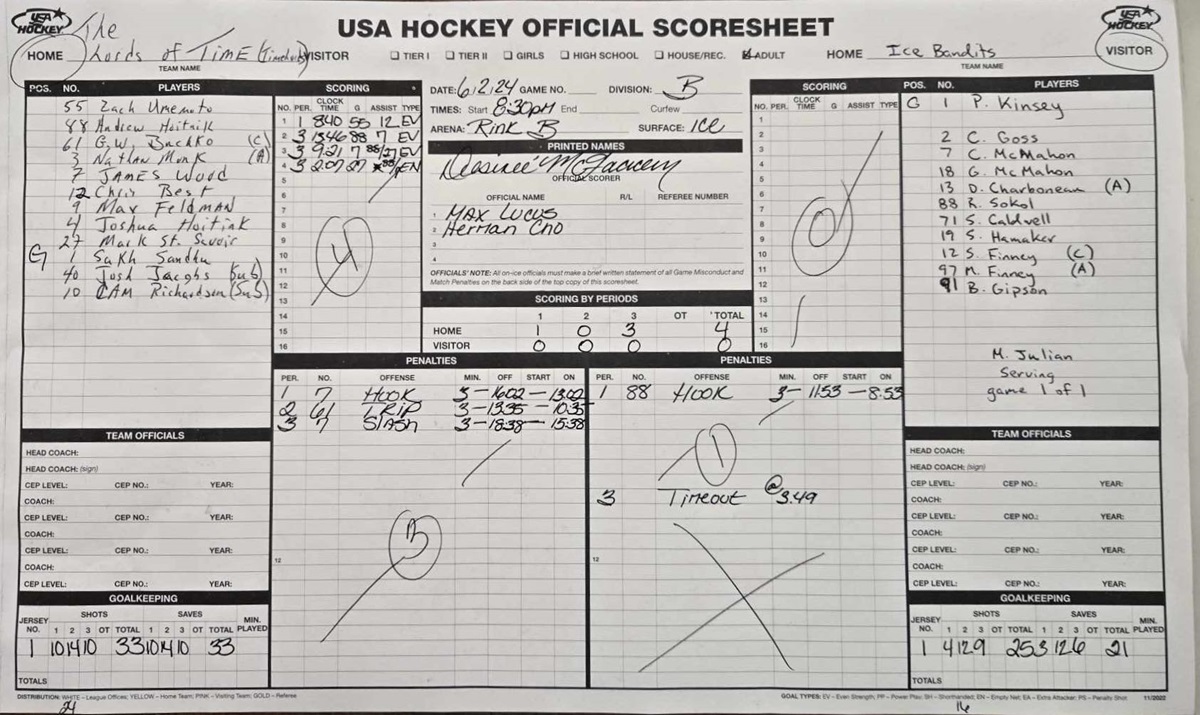 USA HOCKEY OFFICIAL SCORESHEET
USA HOCKEY
USA HOCKEY
The
HOME Lords of Time (Timehub) VISITOR
TEAM NAME
☐ TIER I ☐ TIER II ☐ GIRLS ☐ HIGH SCHOOL ☐ HOUSE/REC. ☑ ADULT
HOME Ice Bandits VISITOR
TEAM NAME
POS. NO. PLAYERS
55 Zach Umemoto
88 Andrew Hoitink
61 G.W. Buchko (C)
3 Nathan Monk (A)
7 JAMES WOOD
12 Chris Best
9 Max FELDMAN
4 Joshua Hoitink
27 Mark St. Savoir
G 1 Sukh Sandhu
40 Josh Jacobs (Sub)
10 CAM Richardson (Sub)
SCORING
NO. PER. CLOCK TIME G ASSIST TYPE
1 1 840 55 12 EV
2 3 1346 88 7 EV
3 3 9:21 7 88/27 EV
4 3 2:07 27 88/7 EN
5
6
7
8
9
10
11
12
13
14
15
16
4
DATE: 6/2/24 GAME NO. DIVISION: B
TIMES: Start 8:30pm End Curfew
ARENA: Rink B SURFACE: ICE
PRINTED NAMES
OFFICIAL SCORER
OFFICIAL NAME R/L REFEREE NUMBER
1 MAX LUCUS
2 Herman Cho
3
4
OFFICIALS' NOTE: All on-ice officials must make a brief written statement of all Game Misconduct and
Match Penalties on the back side of the top copy of this scoresheet.
SCORING BY PERIODS
1 2 3 OT TOTAL
HOME 1 0 3 4
VISITOR 0 0 0 0
SCORING
NO. PER. CLOCK TIME G ASSIST TYPE
1
2
3
4
5
6
7
8
9
10
11
12
13
14
15
16
0
POS. NO. PLAYERS
G 1 P. Kinsey
2 C. Goss
7 C. McMahon
18 G. McMahon
13 D. Charboneau (A)
88 R. Sokol
71 S. Caldwell
19 S. Hamaker
12 S. Finney (C)
97 M. Finney (A)
91 B. Gipson
M. Julian
Serving
game 1 of 1
PENALTIES
PER. NO. OFFENSE MIN. OFF START ON
1 7 HOOK 3 – 1602 – 1302
2 61 TRIP 3 – 1335 – 1035
3 7 SLASH 3 – 1838 – 1538
3
12
PENALTIES
PER. NO. OFFENSE MIN. OFF START ON
1 88 HOOK 3 – 1153 – 8:53
1
3 Timeout @ 3:49
12
TEAM OFFICIALS
HEAD COACH:
HEAD COACH: (sign)
CEP LEVEL: CEP NO.: YEAR:
COACH:
CEP LEVEL: CEP NO.: YEAR:
COACH:
CEP LEVEL: CEP NO.: YEAR:
COACH:
CEP LEVEL: CEP NO.: YEAR:
TEAM OFFICIALS
HEAD COACH:
HEAD COACH: (sign)
CEP LEVEL: CEP NO.: YEAR:
COACH:
CEP LEVEL: CEP NO.: YEAR:
COACH:
CEP LEVEL: CEP NO.: YEAR:
COACH:
CEP LEVEL: CEP NO.: YEAR:
GOALKEEPING
JERSEY NO. SHOTS 1 2 3 OT TOTAL SAVES 1 2 3 OT TOTAL MIN. PLAYED
1 10 14 10 33 10 14 10 33
TOTALS
GOALKEEPING
JERSEY NO. SHOTS 1 2 3 OT TOTAL SAVES 1 2 3 OT TOTAL MIN. PLAYED
1 4 12 9 25 3 12 6 21
TOTALS
DISTRIBUTION: WHITE – League Offices; YELLOW – Home Team; PINK – Visiting Team; GOLD – Referee
GOAL TYPES: EV – Even Strength; PP – Power Play; SH – Shorthanded; EN – Empty Net; EA – Extra Attacker; PS – Penalty Shot 11/2022
24
16